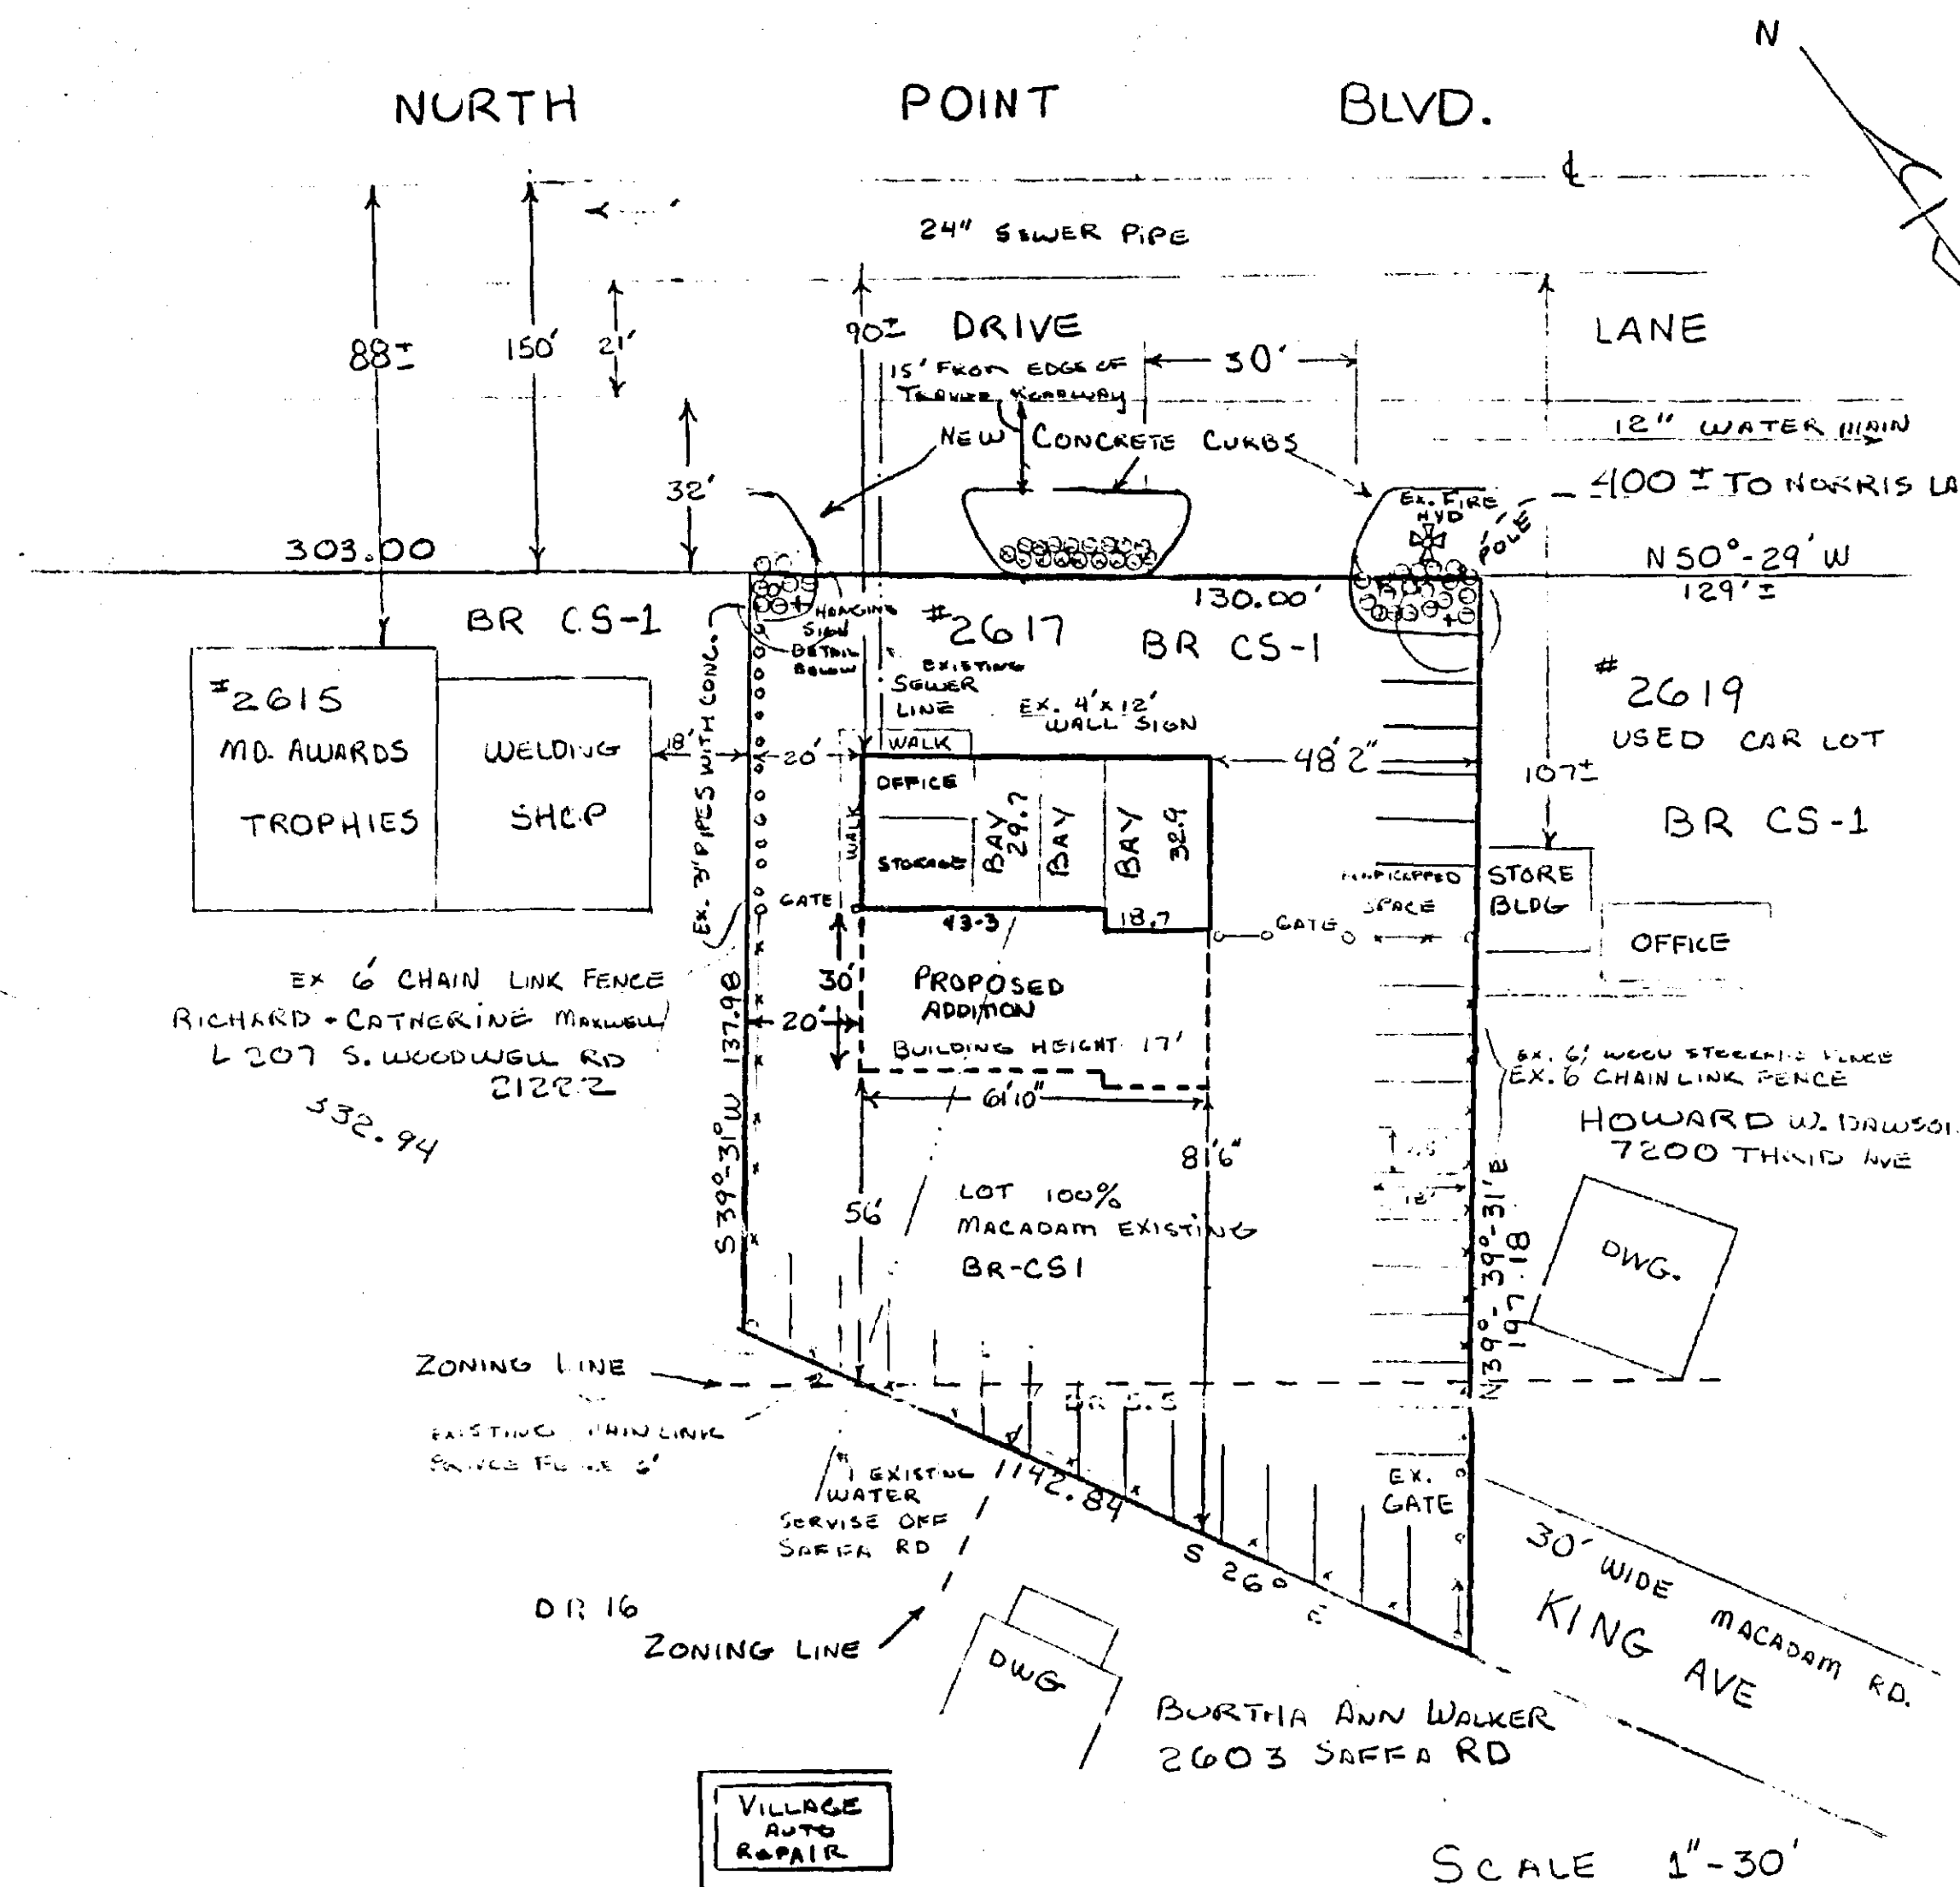 N
NORTH POINT BLVD.
24" SEWER PIPE
DRIVE LANE
88±
150'
21'
90±
15' FROM EDGE OF
TRAVEL ROADWAY
30'
12" WATER MAIN
NEW CONCRETE CURBS
32'
EX. FIRE
HYD
POLE
400 ± TO NORRIS LA
303.00
N50°-29'W
129'±
130.00'
BR CS-1
HANGING
SIGN
DETAIL
BELOW
#2617
BR CS-1
EXISTING
SEWER
LINE
EX. 4'x12'
WALL SIGN
#2615
MD. AWARDS
TROPHIES
WELDING
SHOP
18'
EX. 3" PIPES WITH CONC.
20'
WALK
WALK
OFFICE
STORAGE
BAY
29.7
BAY
BAY
32.9
48'2"
#2619
USED CAR LOT
107±
BR CS-1
HANDICAPPED
SPACE
STORE
BLDG
OFFICE
GATE
43.3
18.7
GATE
EX 6' CHAIN LINK FENCE
RICHARD + CATHERINE MAXWELL
L 207 S. WOODWELL RD
21222
532.94
30'
PROPOSED
ADDITION
20'
BUILDING HEIGHT 17'
61'10"
EX. 6' WOOD STOCKADE FENCE
EX. 6' CHAIN LINK FENCE
HOWARD W. DAWSON
7200 THIRD AVE
S39°-31'W 137.98
56'
81'6"
LOT 100%
MACADAM EXISTING
BR-CS1
18'
N39°-39°-31'E
197.18
DWG.
ZONING LINE
DR 5.5
EXISTING CHAIN LINK
EXISTING
WATER
SERVISE OFF
SAFFA RD
1142.84
S 26° E
EX.
GATE
30' WIDE MACADAM RD.
KING AVE
DR 16
ZONING LINE
DWG
BURTHA ANN WALKER
2603 SAFFA RD
VILLAGE
AUTO
REPAIR
SCALE 1"-30'